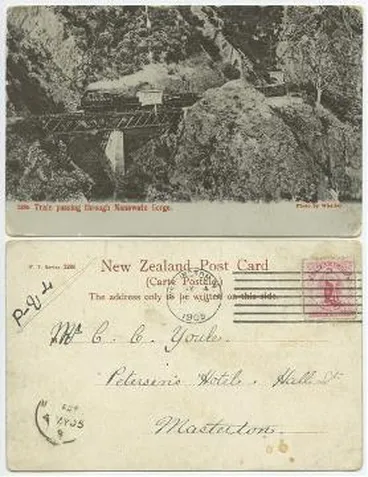 Train passing through Manawatu Gorge.
Photo by
New Zealand Post Card
(Carte Postale)
The address only to be written on this side.
1905
Mr C. C. Youle.
Petersen's Hotel. Hall St
Masterton.